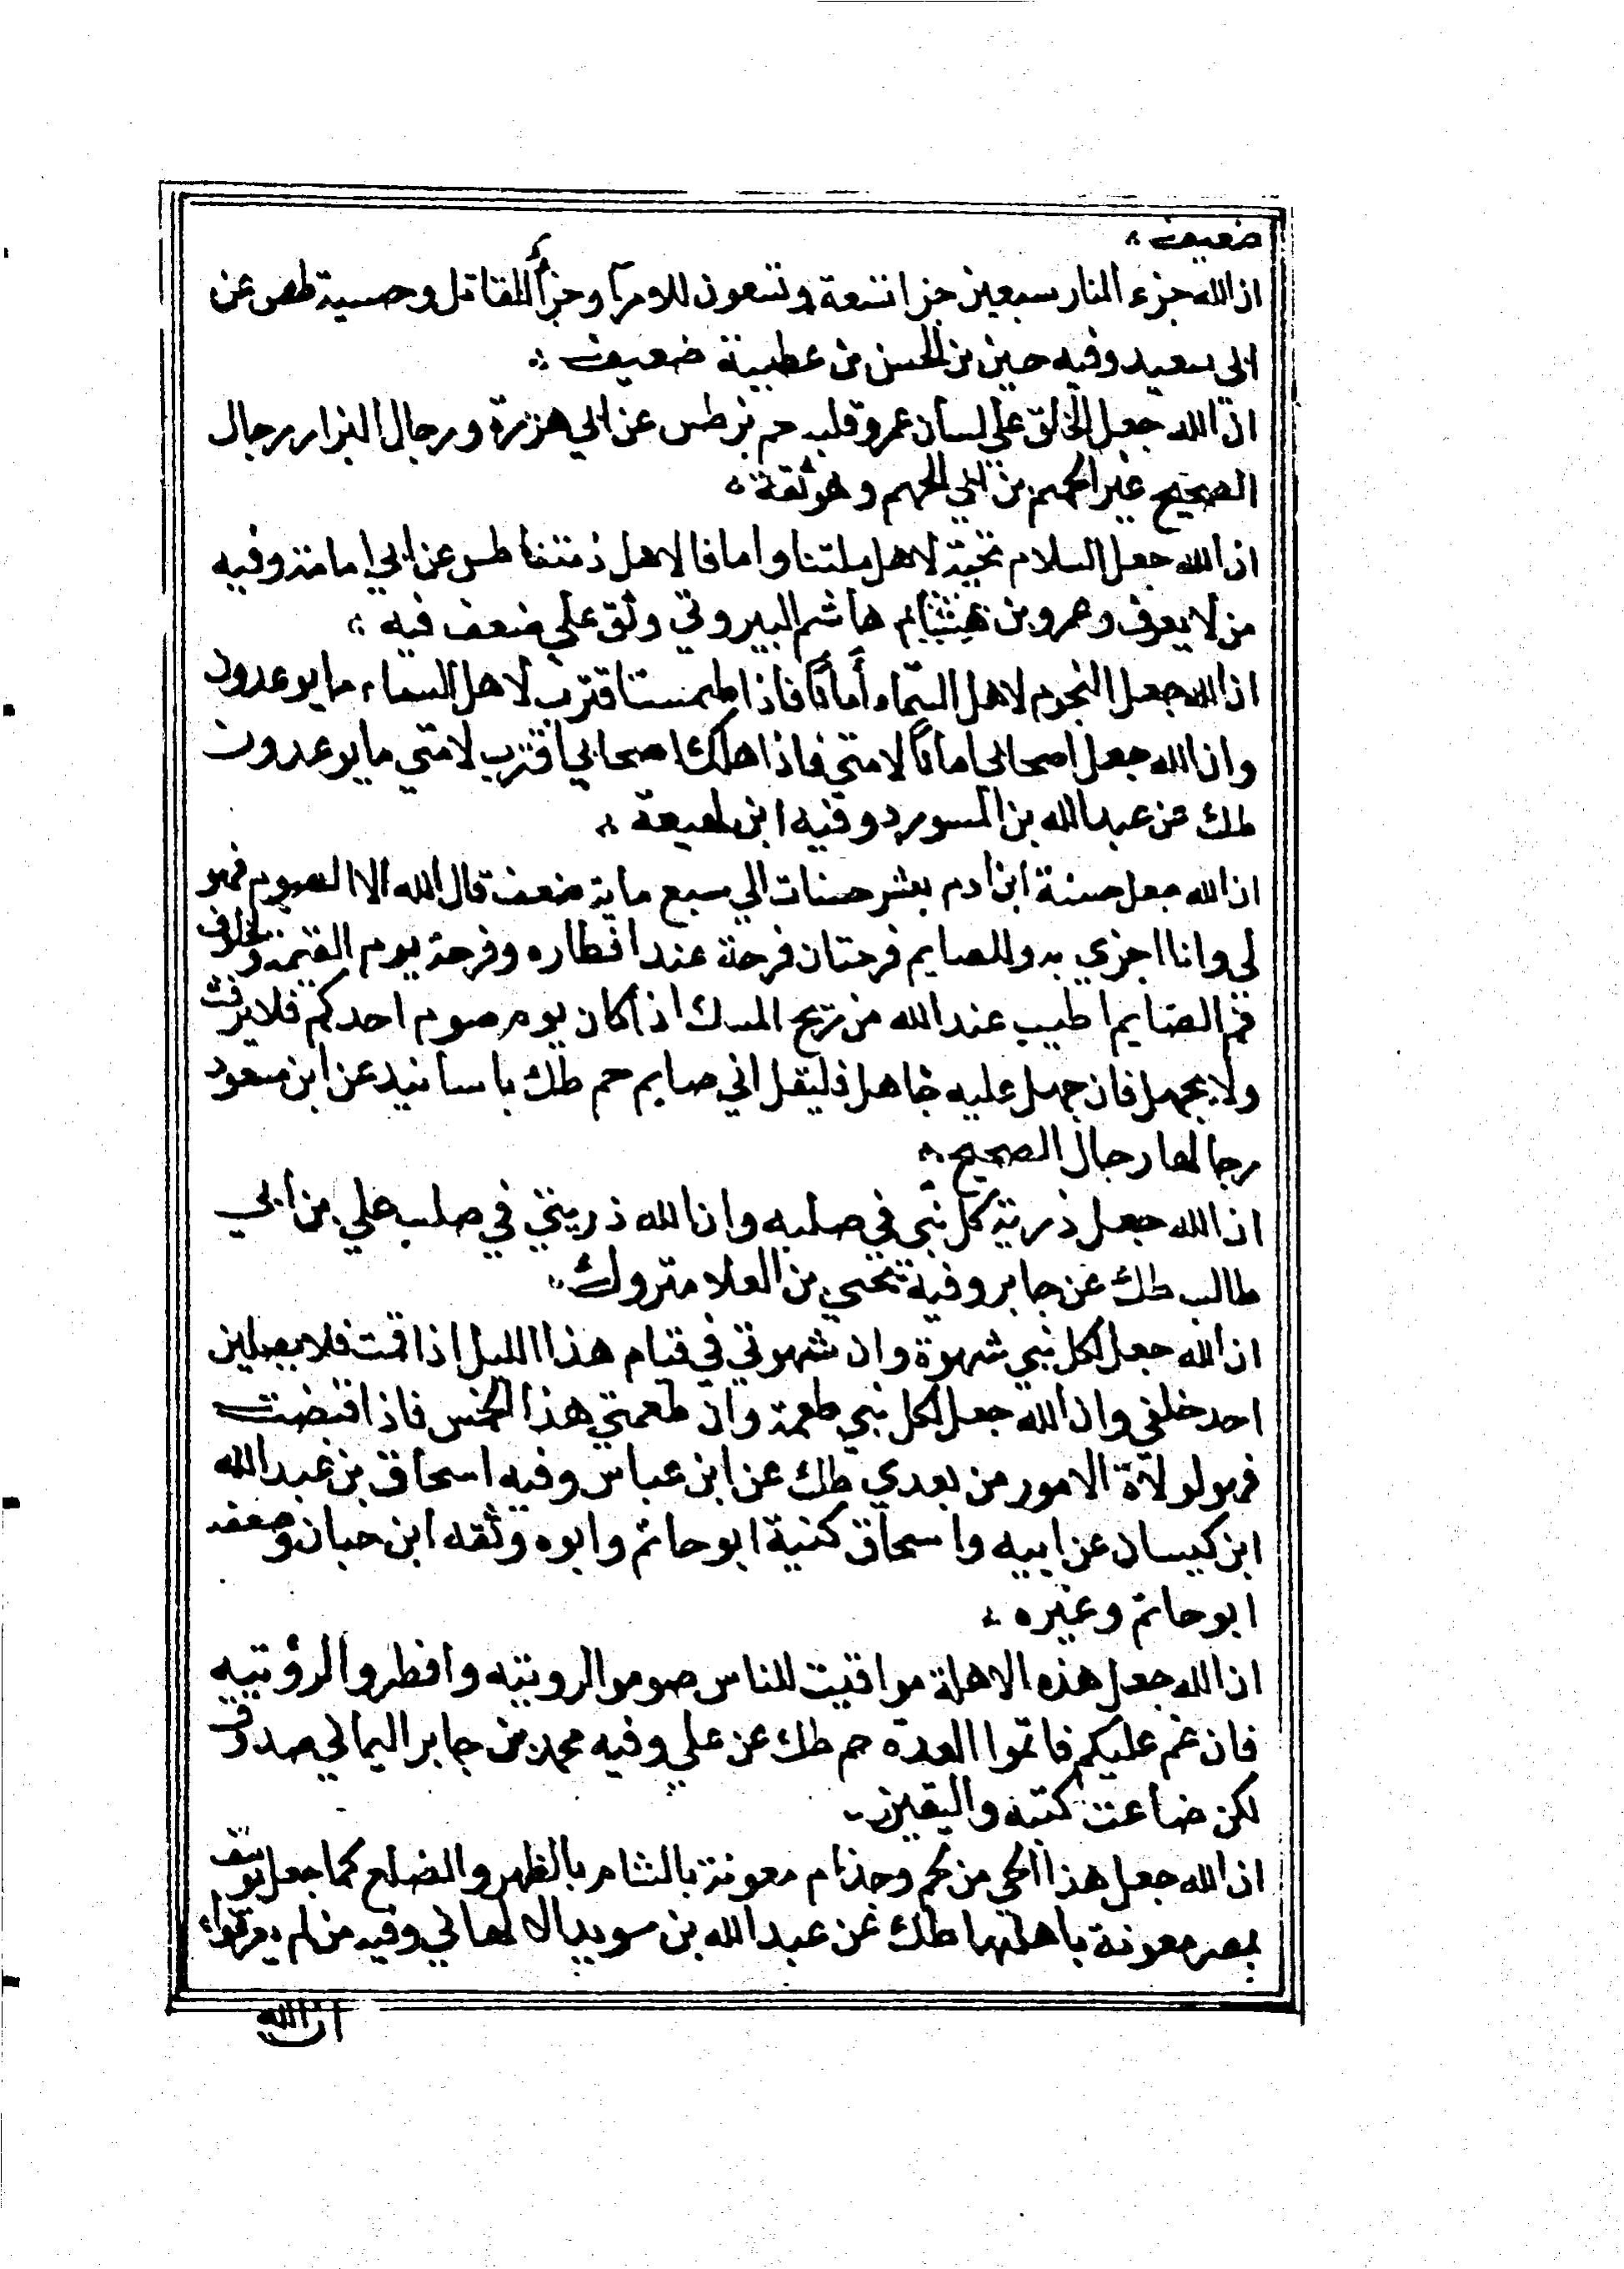 ضعيف
ان الله جزء النار سبعين جزا تسعة وتسعون للامر وجزأ للقاتل وحسبه طص عن
ابي سعيد وفيه حسين بن الحسن بن عطية ضعيف
ان الله جعل الحق علي لسان عمر وقلبه حم بز طس عن ابي هريرة ورجال البزار رجال
الصحيح غير الجهم بن ابي الجهم وهو ثقة
ان الله جعل السلام تحية لاهل ملتنا وامانا لاهل ذمتنا طس عن ابي امامة وفيه
من لا يعرف وعمرو بن هاشم البيروتي وثق علي ضعف فيه
ان الله جعل النجوم لاهل السماء أمانًا فاذا طمست اقترب لاهل السماء ما يوعدون
وان الله جعل اصحابي امانًا لامتي فاذا هلك اصحابي اقترب لامتي ما يوعدون
طك عن عبد الله بن المسورد وفيه ابن لهيعة
ان الله جعل حسنة ابن ادم بعشر حسنات الي سبع ماية ضعف قال الله الا الصوم فهو
لي وانا اجزي به وللصايم فرحتان فرحة عند افطاره وفرحة يوم القيمة ولخلوف
فم الصايم اطيب عند الله من ريح المسك اذا كان يوم صوم احدكم فلا يرفث
ولا يجهل فان جهل عليه جاهل فليقل اني صايم حم طك باسانيد عن ابن مسعود
رجالها رجال الصحيح
ان الله جعل ذرية كل نبي في صلبه وان الله ذريتي في صلب علي بن ابي
طالب طك عن جابر وفيه يحيي بن العلا متروك
ان الله جعل لكل نبي شهوة وان شهوتي في قيام هذا الليل اذا قمت فلا يصلين
احد خلفي وان الله جعل لكل نبي طعمة وان طعمتي هذا الخمس فاذا قبضت
فهو لولاة الامور من بعدي طك عن ابن عباس وفيه اسحاق بن عبد الله
ابن كيسان عن ابيه واسحاق كنية ابو حاتم وابوه وثقه ابن حبان وضعفه
ابو حاتم وغيره
ان الله جعل هذه الاهلة مواقيت للناس صوموا لرويته وافطروا لرؤيته
فان غم عليكم فاتموا العدة حم طك عن علي وفيه محمد بن جابر اليمالي صدوق
لكن ضاعت كتبه واليقين
ان الله جعل هذا الحي من لخم وجذام معونة بالشام بالظهر والضلع كما جعل يوسف
بمصر معونة باهلها طك عن عبد الله بن سويد الالهاني وفيه من لم يعرفوا
ان الله